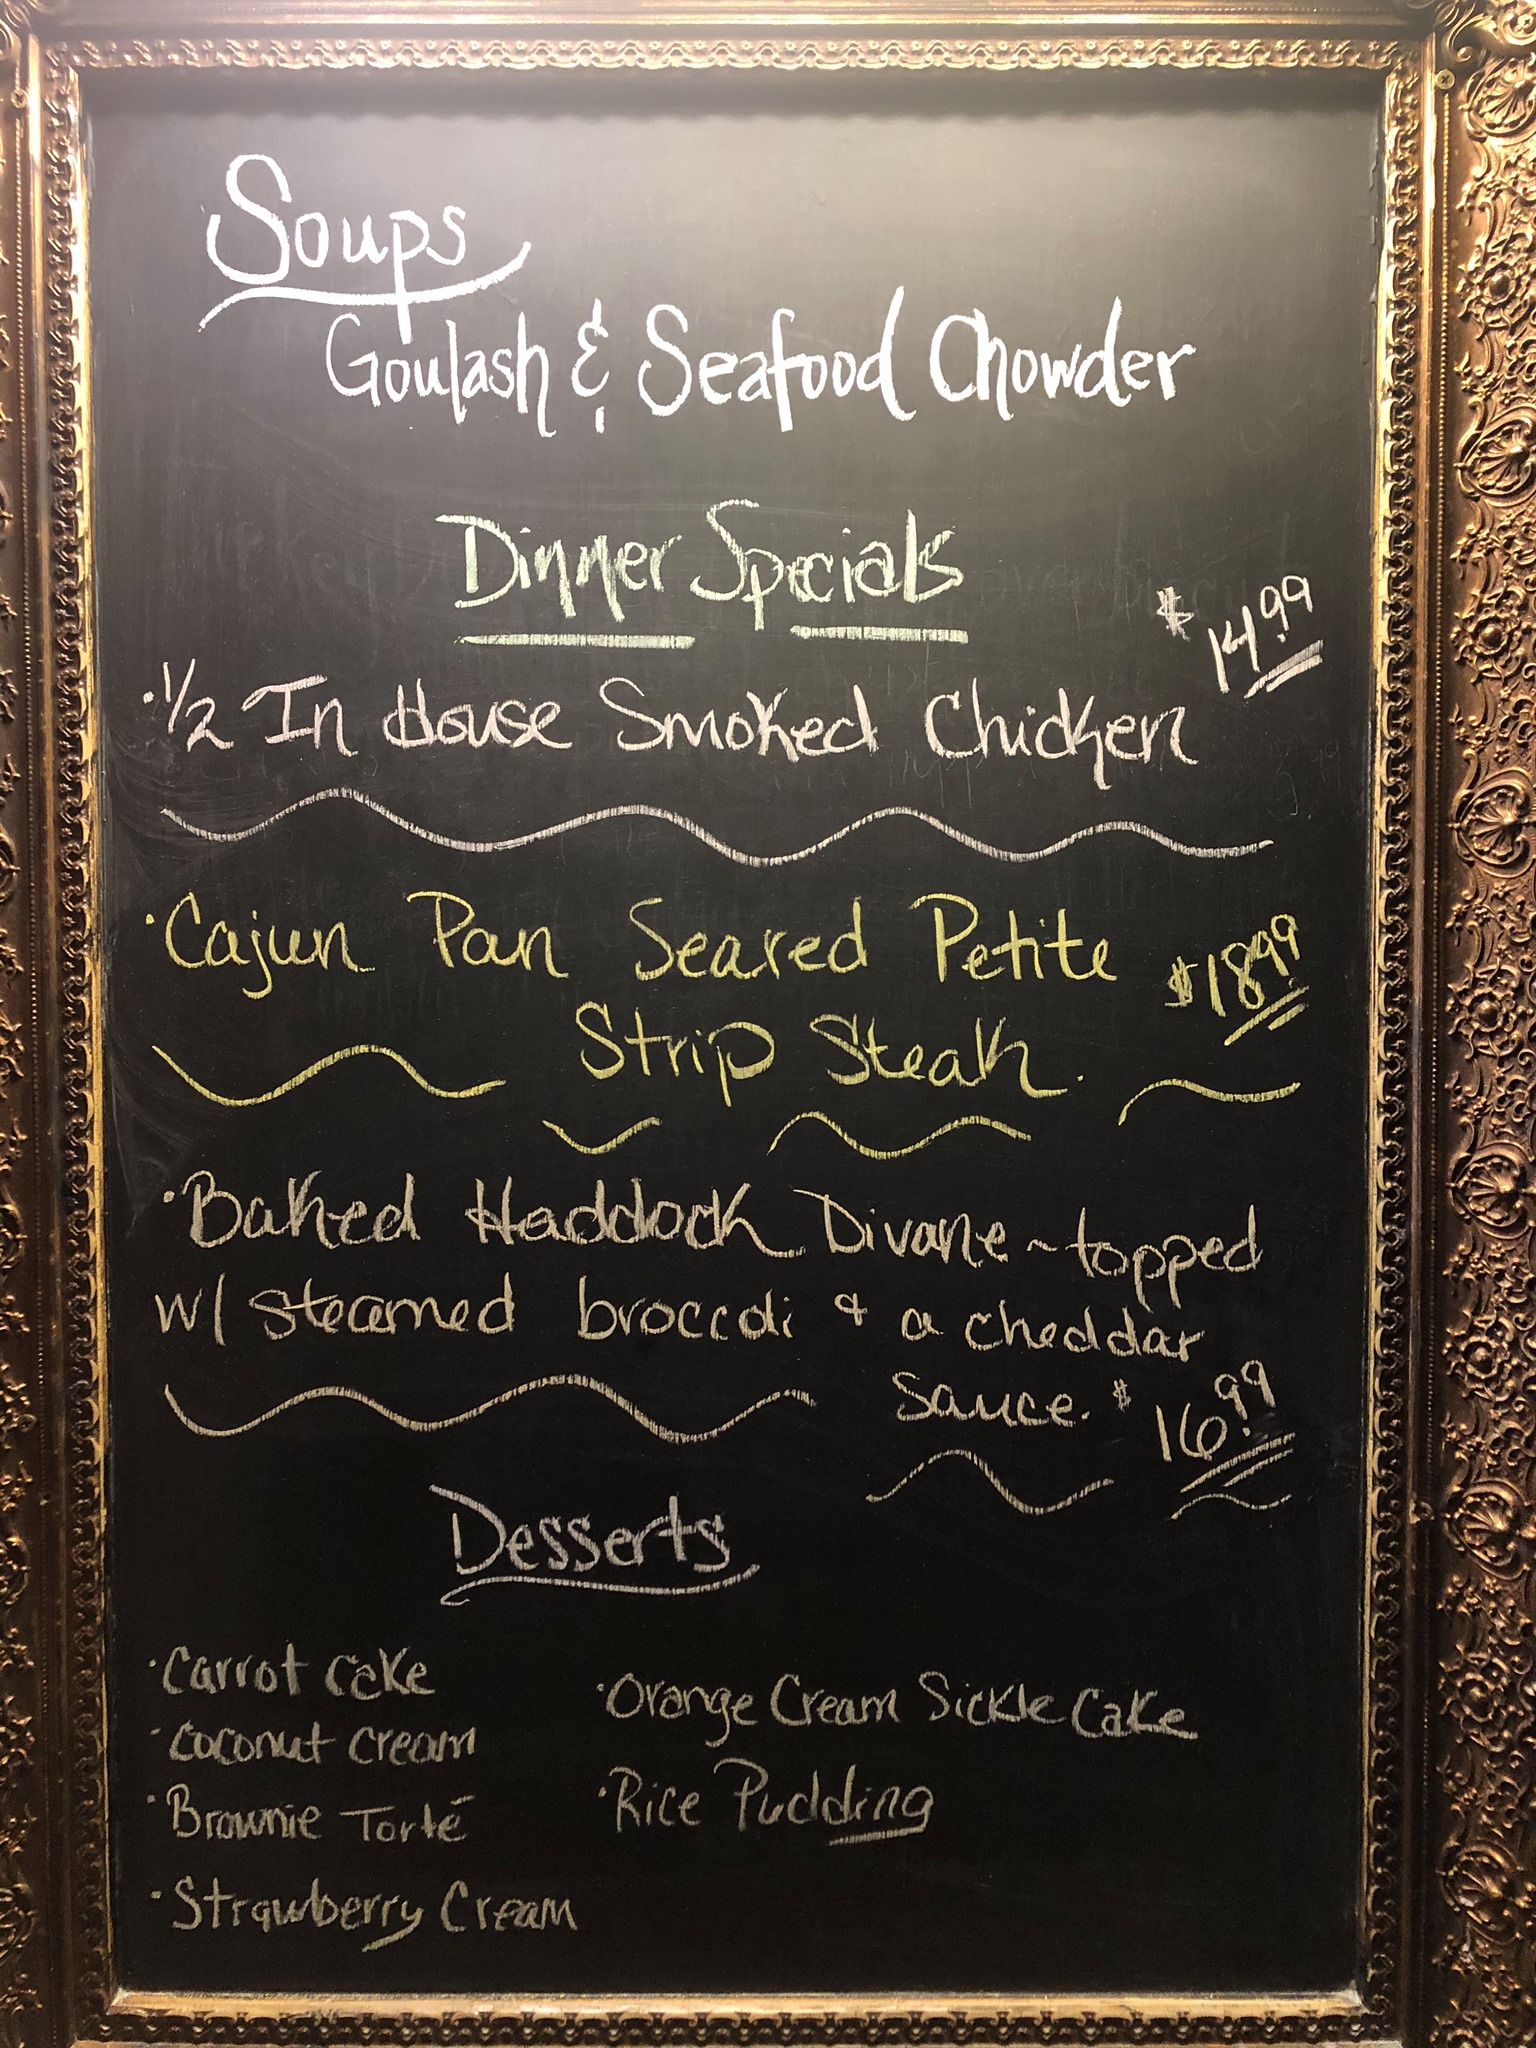 Soups
Goulash & Seafood Chowder
Dinner Specials
$14.99
·1/2 In House Smoked Chicken
·Cajun Pan Seared Petite
$18.99
Strip Steak.
·Baked Haddock Divane ~ topped
w/ steamed broccoli & a cheddar
sauce. $16.99
Desserts
·Carrot Cake
·Coconut Cream
·Brownie Torté
·Strawberry Cream
·Orange Cream Sickle Cake
·Rice Pudding